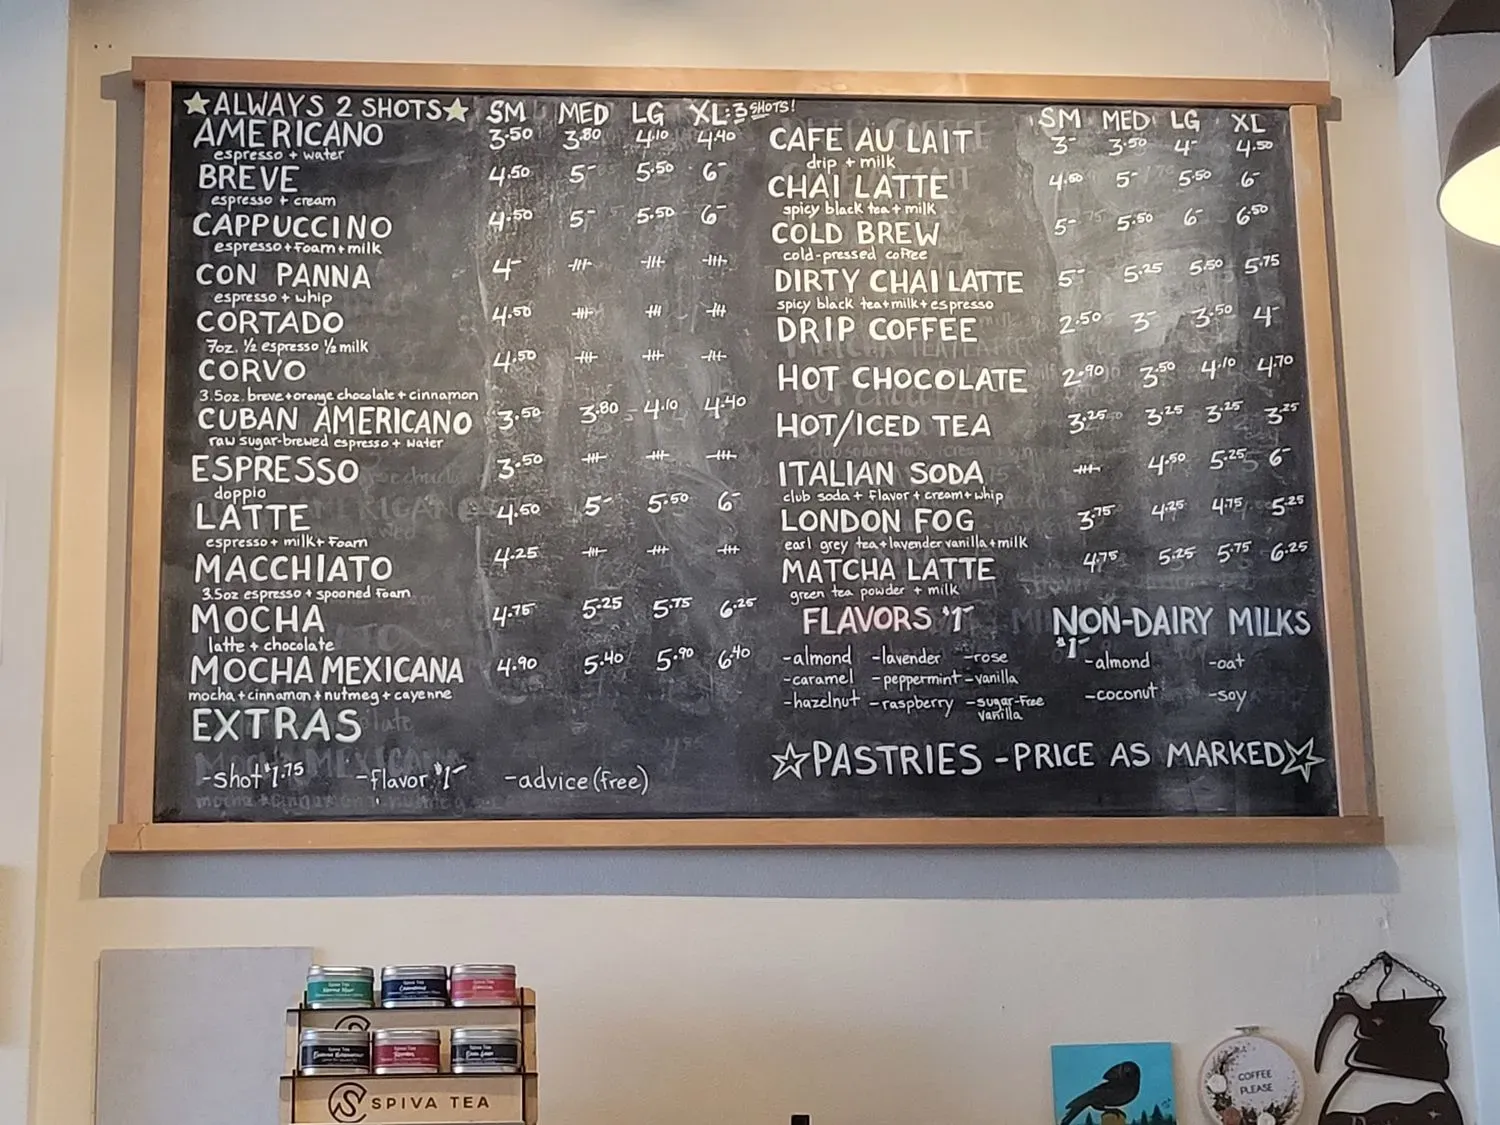 ★ALWAYS 2 SHOTS★ SM MED LG XL:3 SHOTS!
AMERICANO 3.50 3.80 4.10 4.40
espresso + water
BREVE 4.50 5- 5.50 6-
espresso + cream
CAPPUCCINO 4.50 5- 5.50 6-
espresso + foam + milk
CON PANNA 4-
espresso + whip
CORTADO 4.50
7oz. ½ espresso ½ milk
CORVO 4.50
3.5oz. breve + orange chocolate + cinnamon
CUBAN AMERICANO 3.50 3.80 4.10 4.40
raw sugar-brewed espresso + water
ESPRESSO 3.50
doppio
LATTE 4.50 5- 5.50 6-
espresso + milk + foam
MACCHIATO 4.25
3.5oz espresso + spooned foam
MOCHA 4.75 5.25 5.75 6.25
latte + chocolate
MOCHA MEXICANA 4.90 5.40 5.90 6.40
mocha + cinnamon + nutmeg + cayenne
EXTRAS
-shot $1.75 -flavor $1- -advice (free)
SM MED LG XL
CAFE AU LAIT 3- 3.50 4- 4.50
drip + milk
CHAI LATTE 4.50 5- 5.50 6-
spicy black tea + milk
COLD BREW 5- 5.50 6- 6.50
cold-pressed coffee
DIRTY CHAI LATTE 5- 5.25 5.50 5.75
spicy black tea + milk + espresso
DRIP COFFEE 2.50 3- 3.50 4-
HOT CHOCOLATE 2.90 3.50 4.10 4.70
HOT/ICED TEA 3.25 3.25 3.25 3.25
ITALIAN SODA 4.50 5.25 6-
club soda + flavor + cream + whip
LONDON FOG 3.75 4.25 4.75 5.25
earl grey tea + lavender vanilla + milk
MATCHA LATTE 4.75 5.25 5.75 6.25
green tea powder + milk
FLAVORS $1-
-almond -lavender -rose
-caramel -peppermint -vanilla
-hazelnut -raspberry -sugar-free vanilla
NON-DAIRY MILKS
$1-
-almond -oat
-coconut -soy
☆PASTRIES - PRICE AS MARKED☆
SPIVA TEA
COFFEE
PLEASE